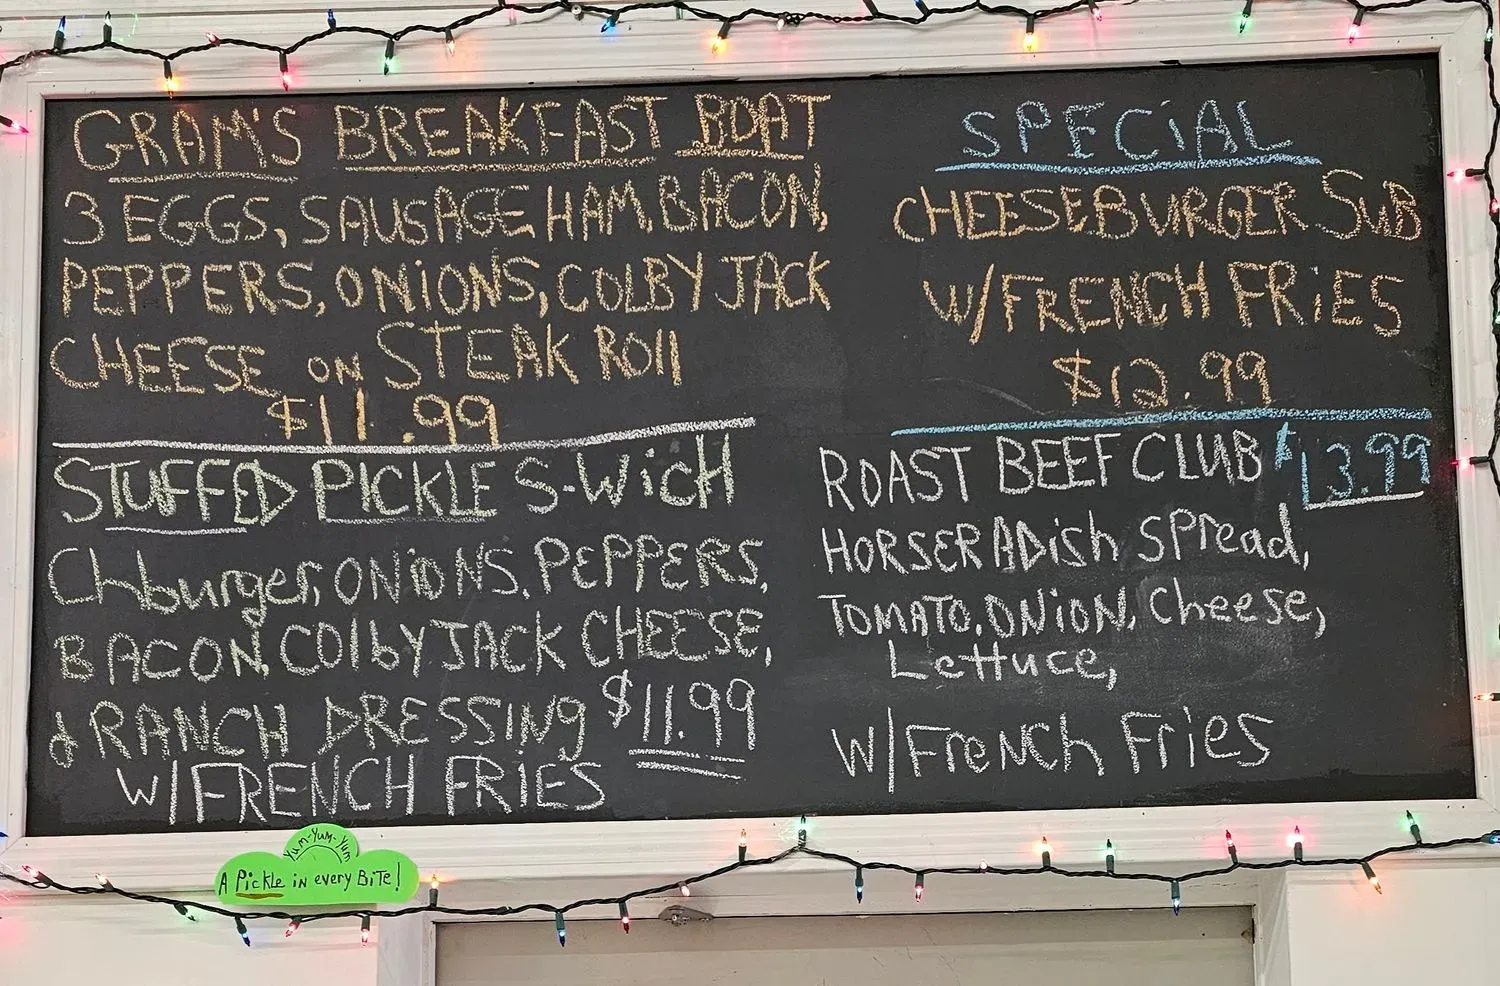 GRAM'S BREAKFAST BOAT
3 EGGS, SAUSAGE HAM, BACON,
PEPPERS, ONIONS, COLBY JACK
CHEESE ON STEAK ROll
$11.99
STUFFED PICKLE S-WicH
Chburger, ONIONS, PEPPERS,
BACON, COlbY JACK CHEESE,
& RANCH DRESSING $11.99
W/FRENCH FRIES
SPECiAL
CHEESEBURGER SUB
W/FRENCH FRiES
$12.99
ROAST BEEF CLUB $13.99
HORSERADish spread,
TOMATO, ONION, Cheese,
Lettuce,
W/French Fries
Yum-Yum-Yum
A Pickle in every BiTe!